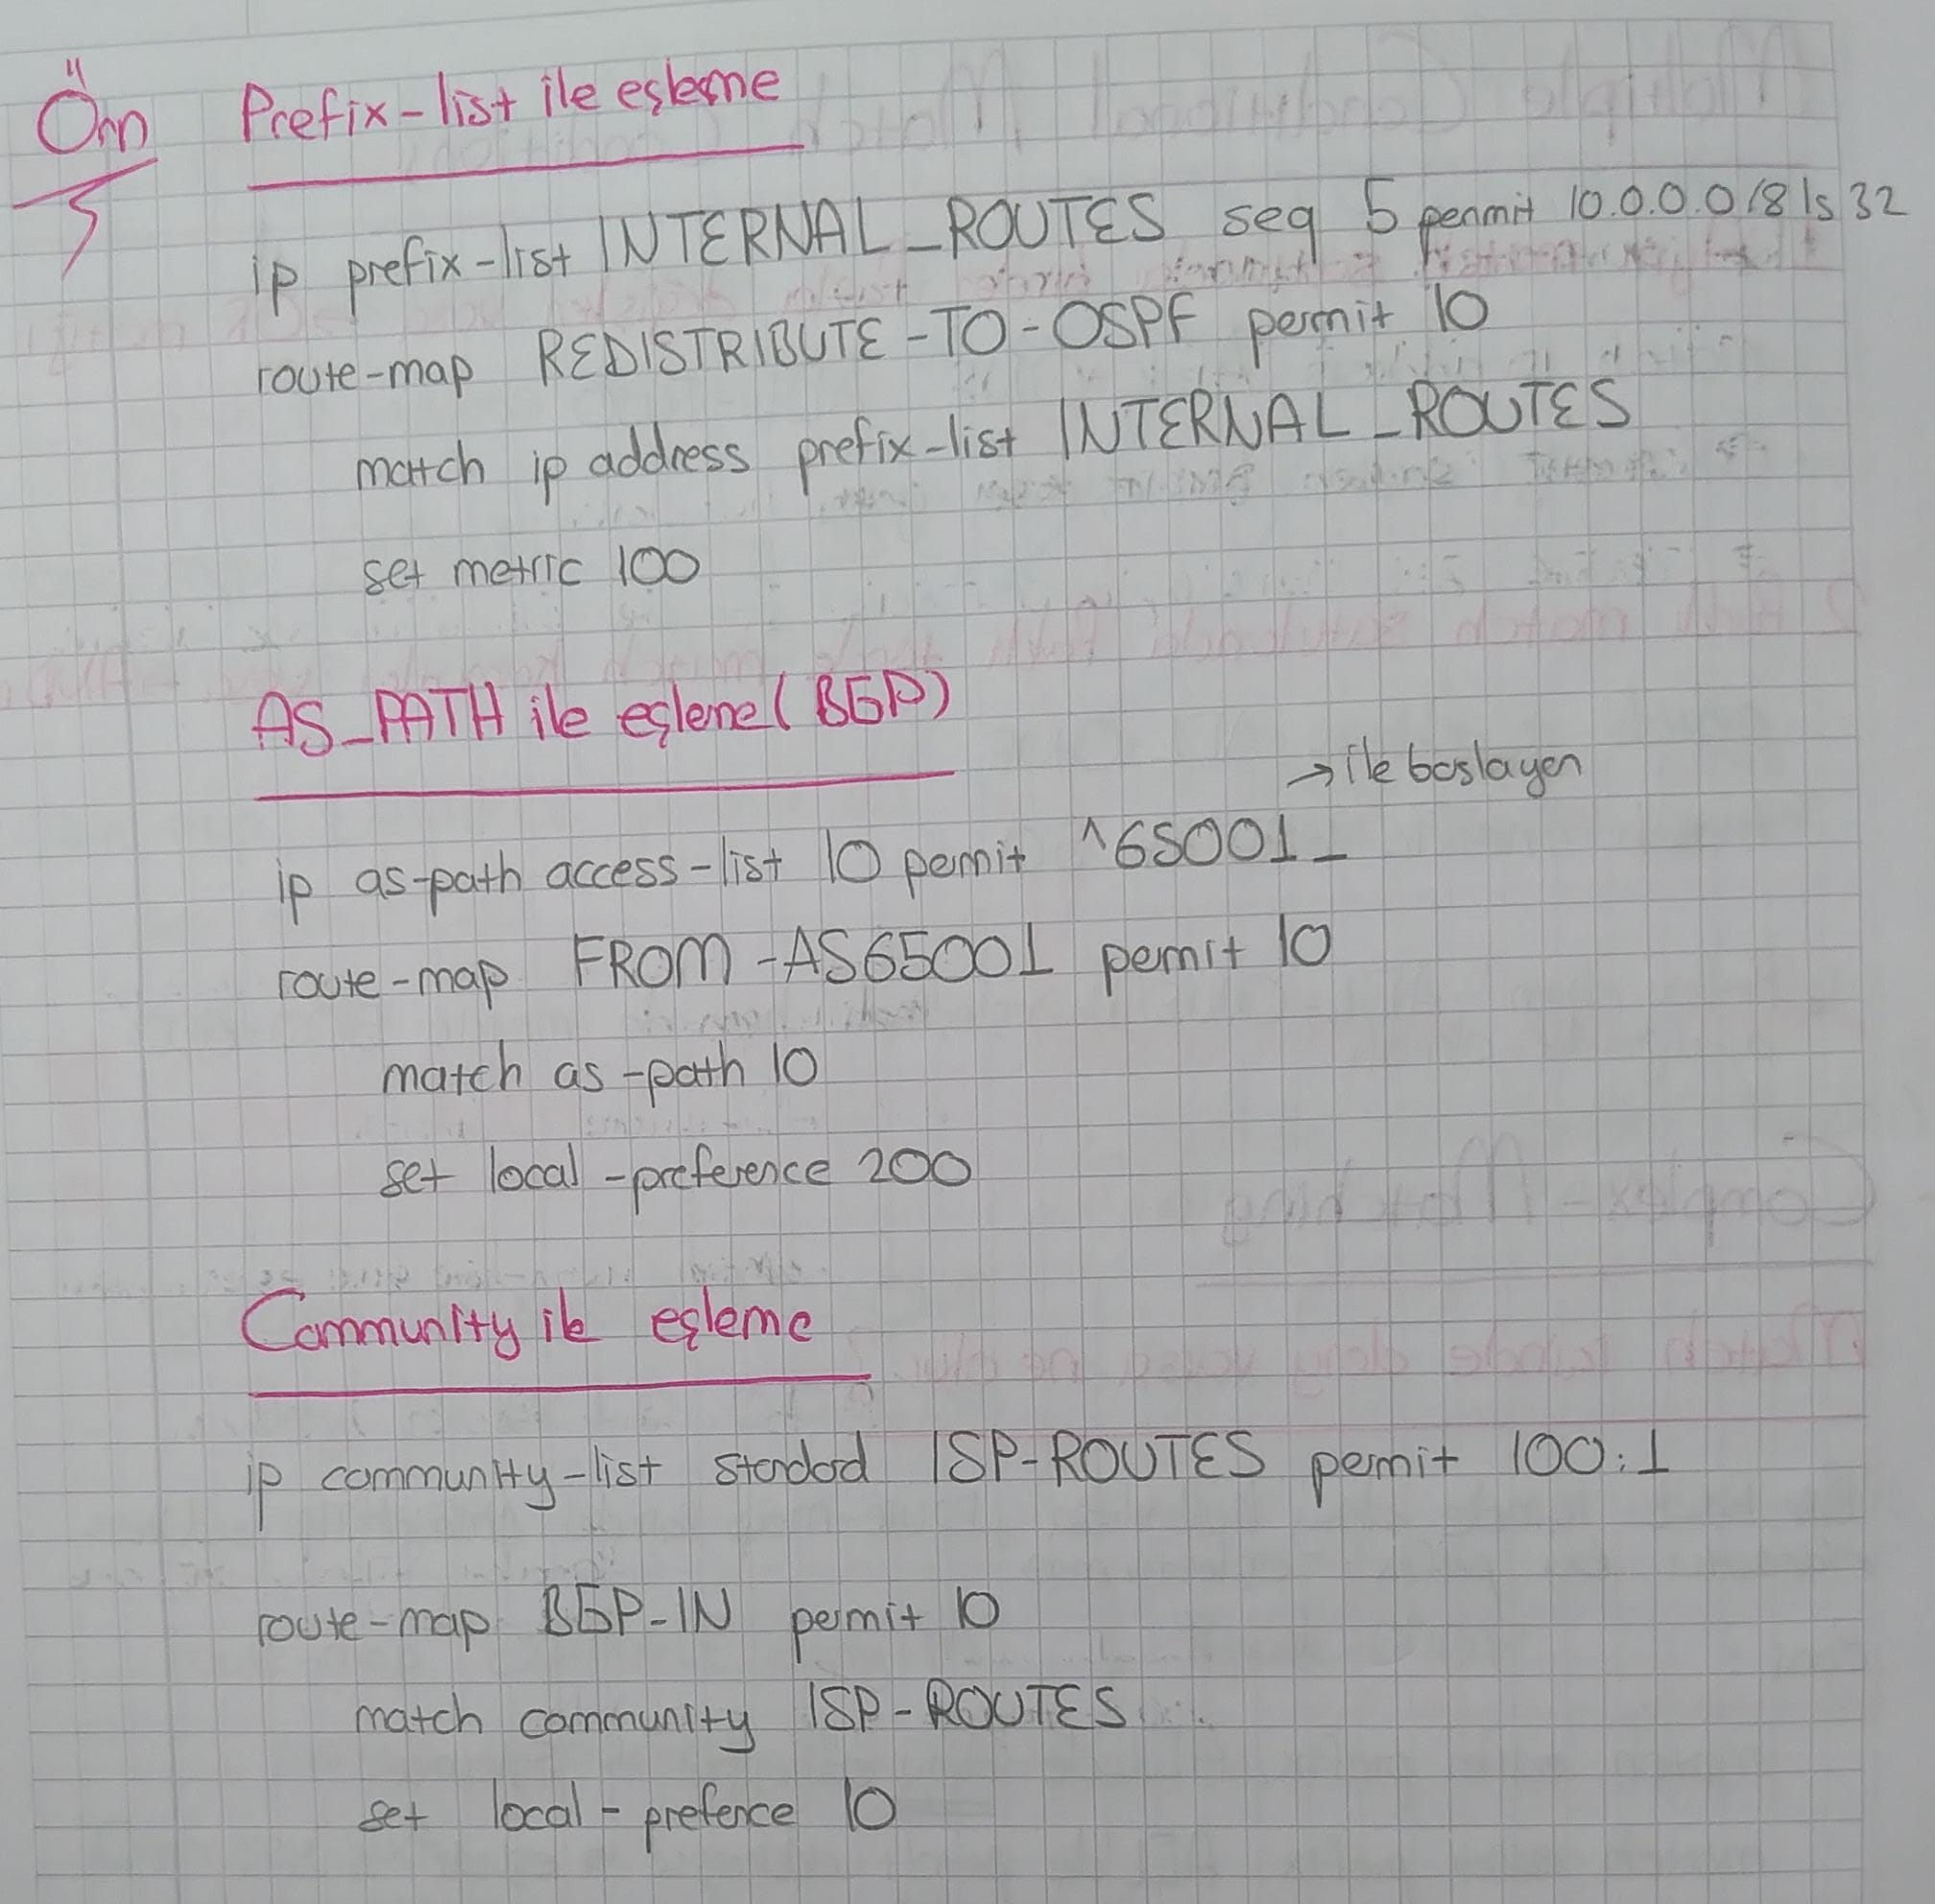 Örn Prefix-list ile eşleme
ip prefix-list INTERNAL_ROUTES seq 5 permit 10.0.0.0/8 ls 32
route-map REDISTRIBUTE-TO-OSPF permit 10
match ip address prefix-list INTERNAL_ROUTES
set metric 100
AS_PATH ile eşleme (BGP)
→ ile başlayan
ip as-path access-list 10 permit ^65001_
route-map FROM-AS65001 permit 10
match as-path 10
set local-preference 200
Community ile eşleme
ip community-list standard ISP-ROUTES permit 100:1
route-map BGP-IN permit 10
match community ISP-ROUTES
set local-prefence 10